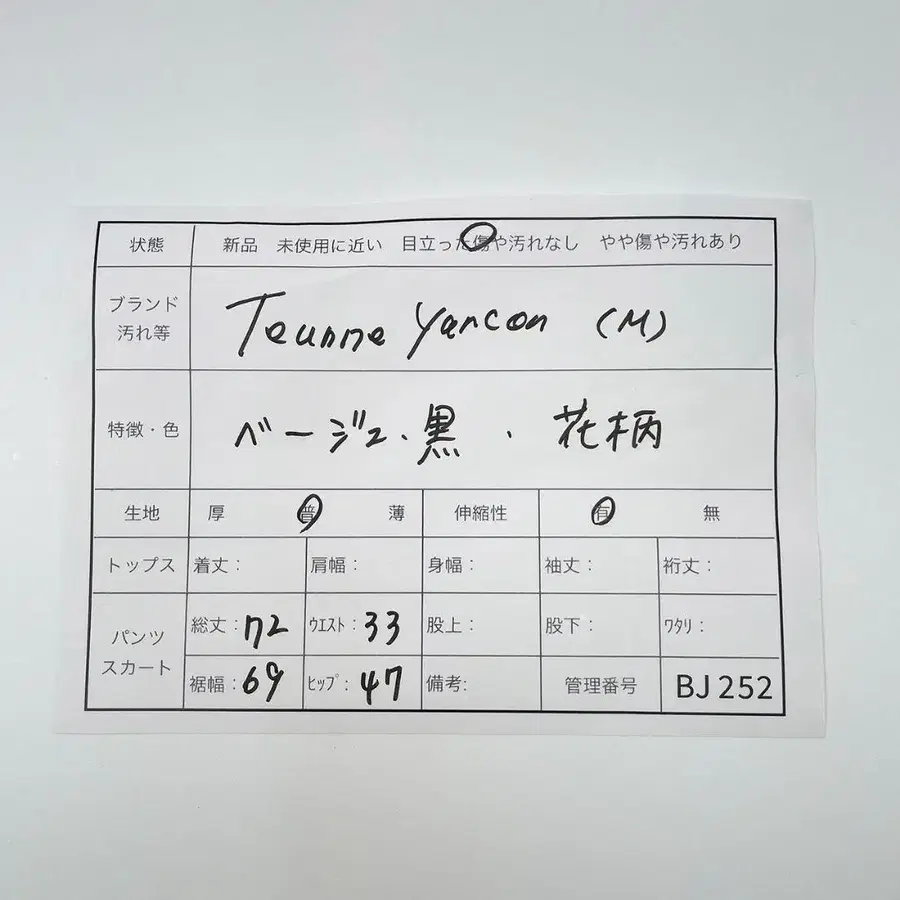 状態 新品 未使用に近い 目立った傷や汚れなし やや傷や汚れあり
ブランド
汚れ等
Teunne Yancon (M)
特徴・色 ベージュ・黒・花柄
生地 厚 普 薄 伸縮性 有 無
トップス 着丈: 肩幅: 身幅: 袖丈: 裄丈:
パンツ
スカート
総丈:72 ウエスト:33 股上: 股下: ワタリ:
裾幅:69 ヒップ:47 備考: 管理番号 BJ252